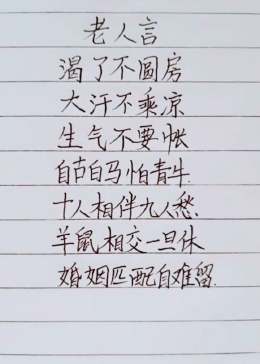 老人言
渴了不圆房
大汗不乘凉
生气不要帐
自古白马怕青牛
十人相伴九人愁
羊鼠相交一旦休
婚姻匹配自难留